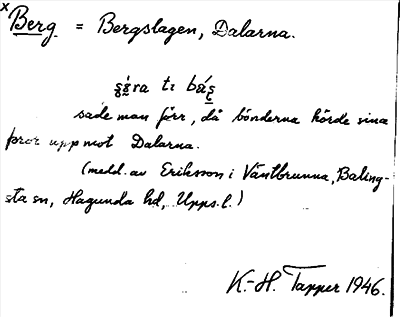 x Berg = Bergslagen, Dalarna.
ti
sade man förr, då bönderna körde sina
uppmot Dalarna.
(medd. av Eriksson i Väntbrunna, Baling-
sta sn, Hagunda hd, Upps. l.)
K.-H. Tapper 1946.